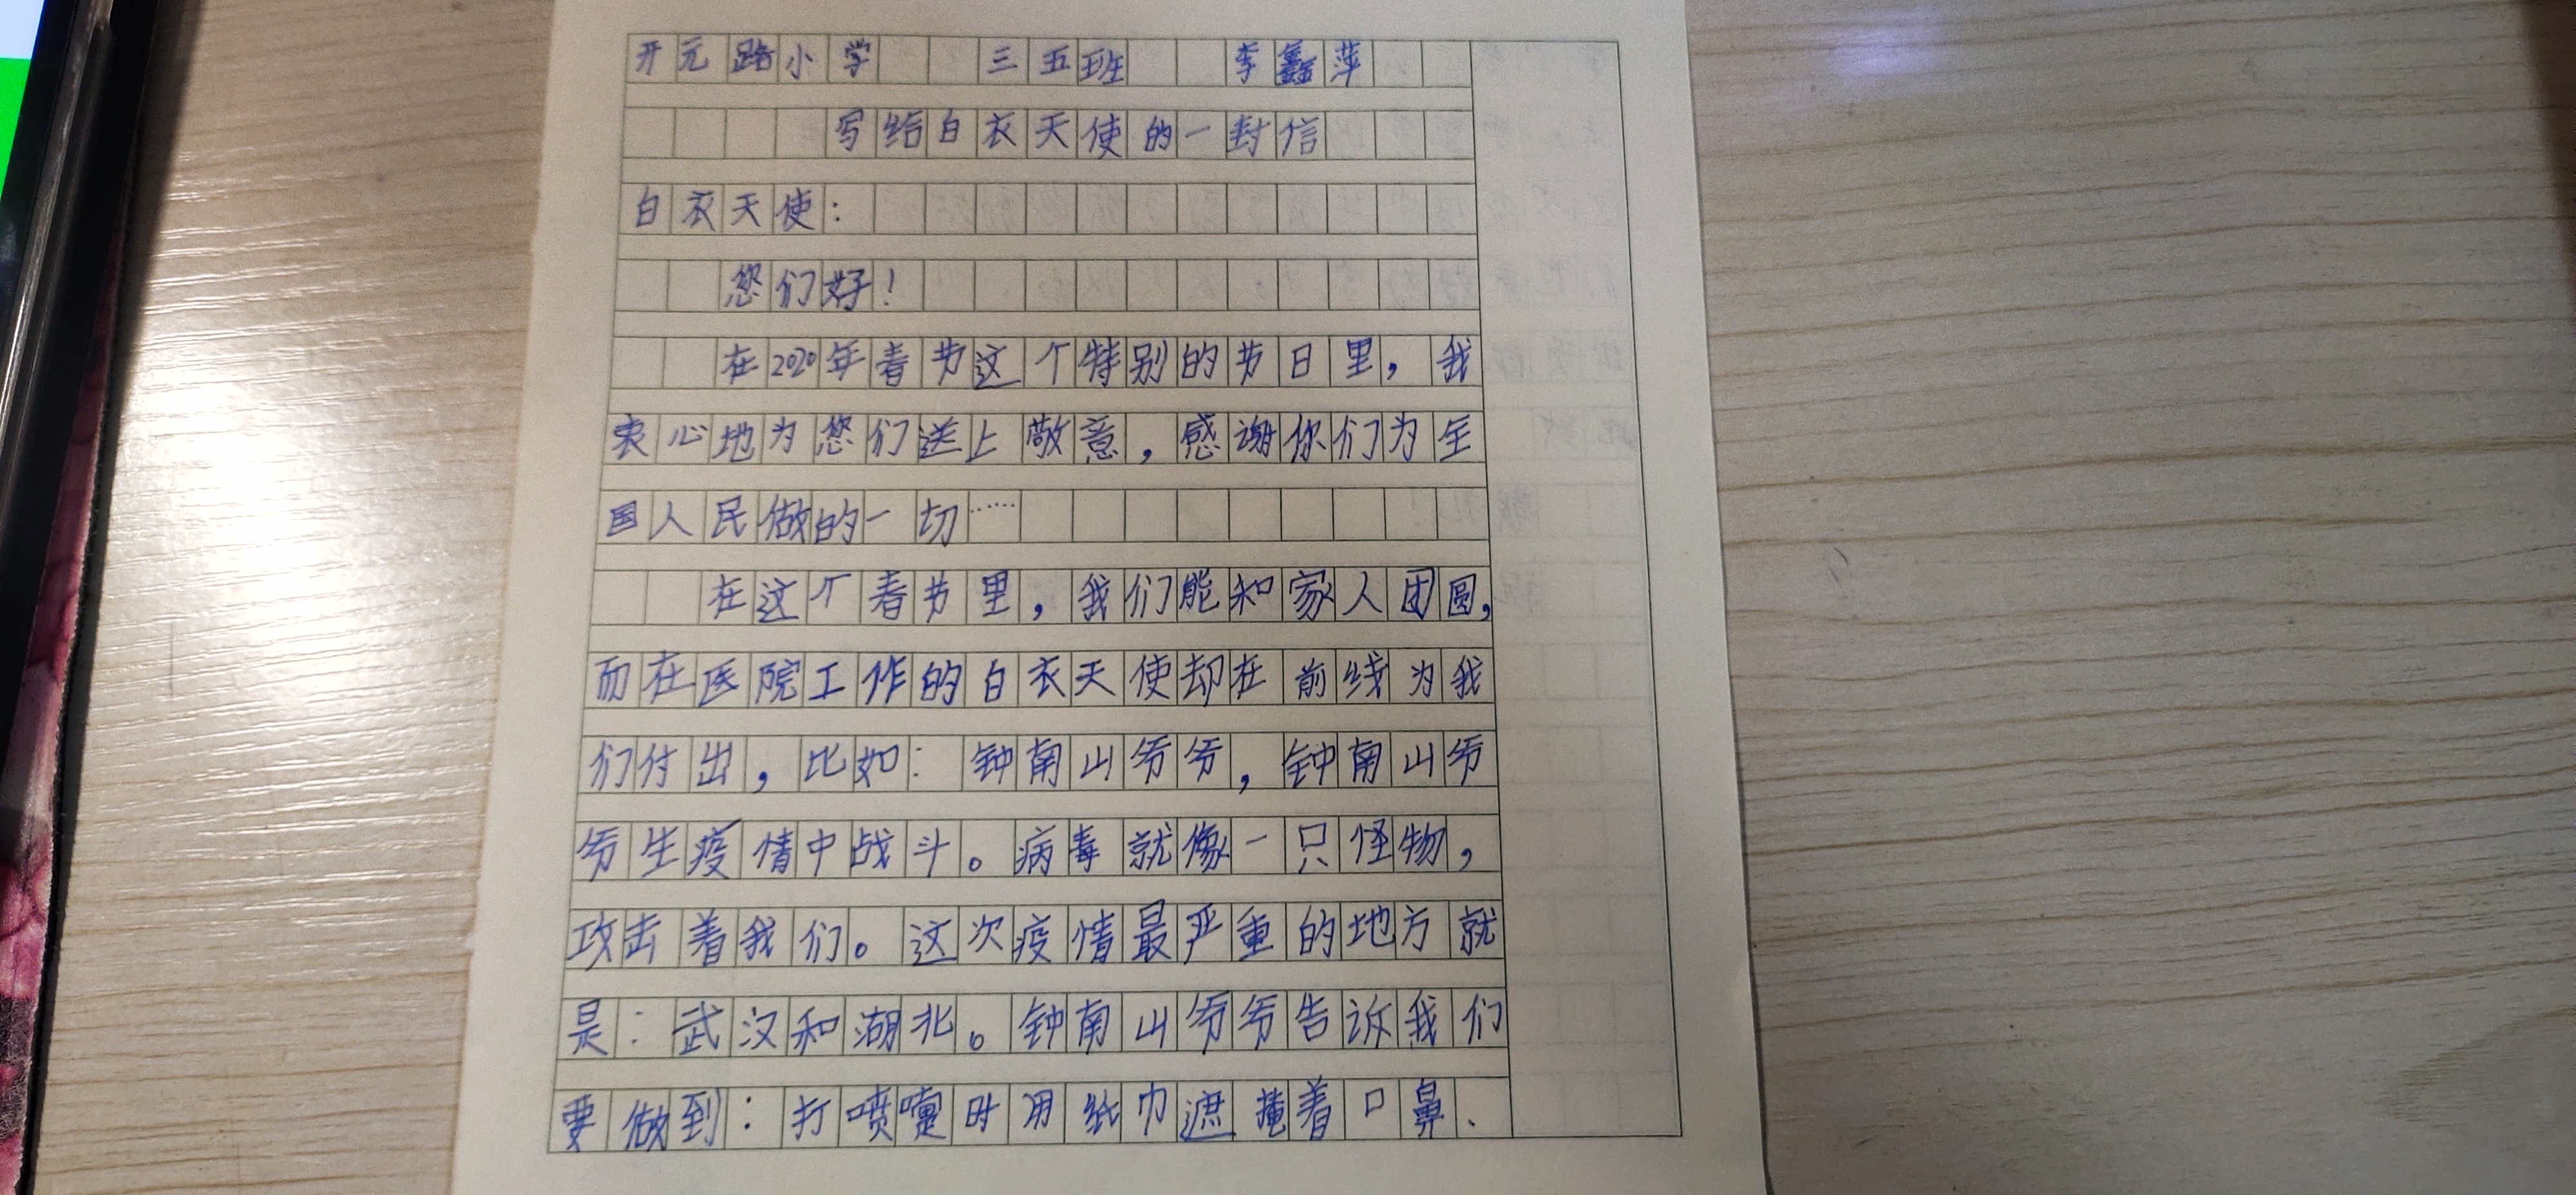 开元路小学 三五班 李鑫萍
写给白衣天使的一封信
白衣天使：
您们好！
在2020年春节这个特别的节日里，我
衷心地为您们送上敬意，感谢你们为全
国人民做的一切……
在这个春节里，我们能和家人团圆，
而在医院工作的白衣天使却在前线为我
们付出，比如：钟南山爷爷，钟南山爷
爷生疫情中战斗。病毒就像一只怪物，
攻击着我们。这次疫情最严重的地方就
是：武汉和湖北。钟南山爷爷告诉我们
要做到：打喷嚏时用纸巾遮掩着口鼻、